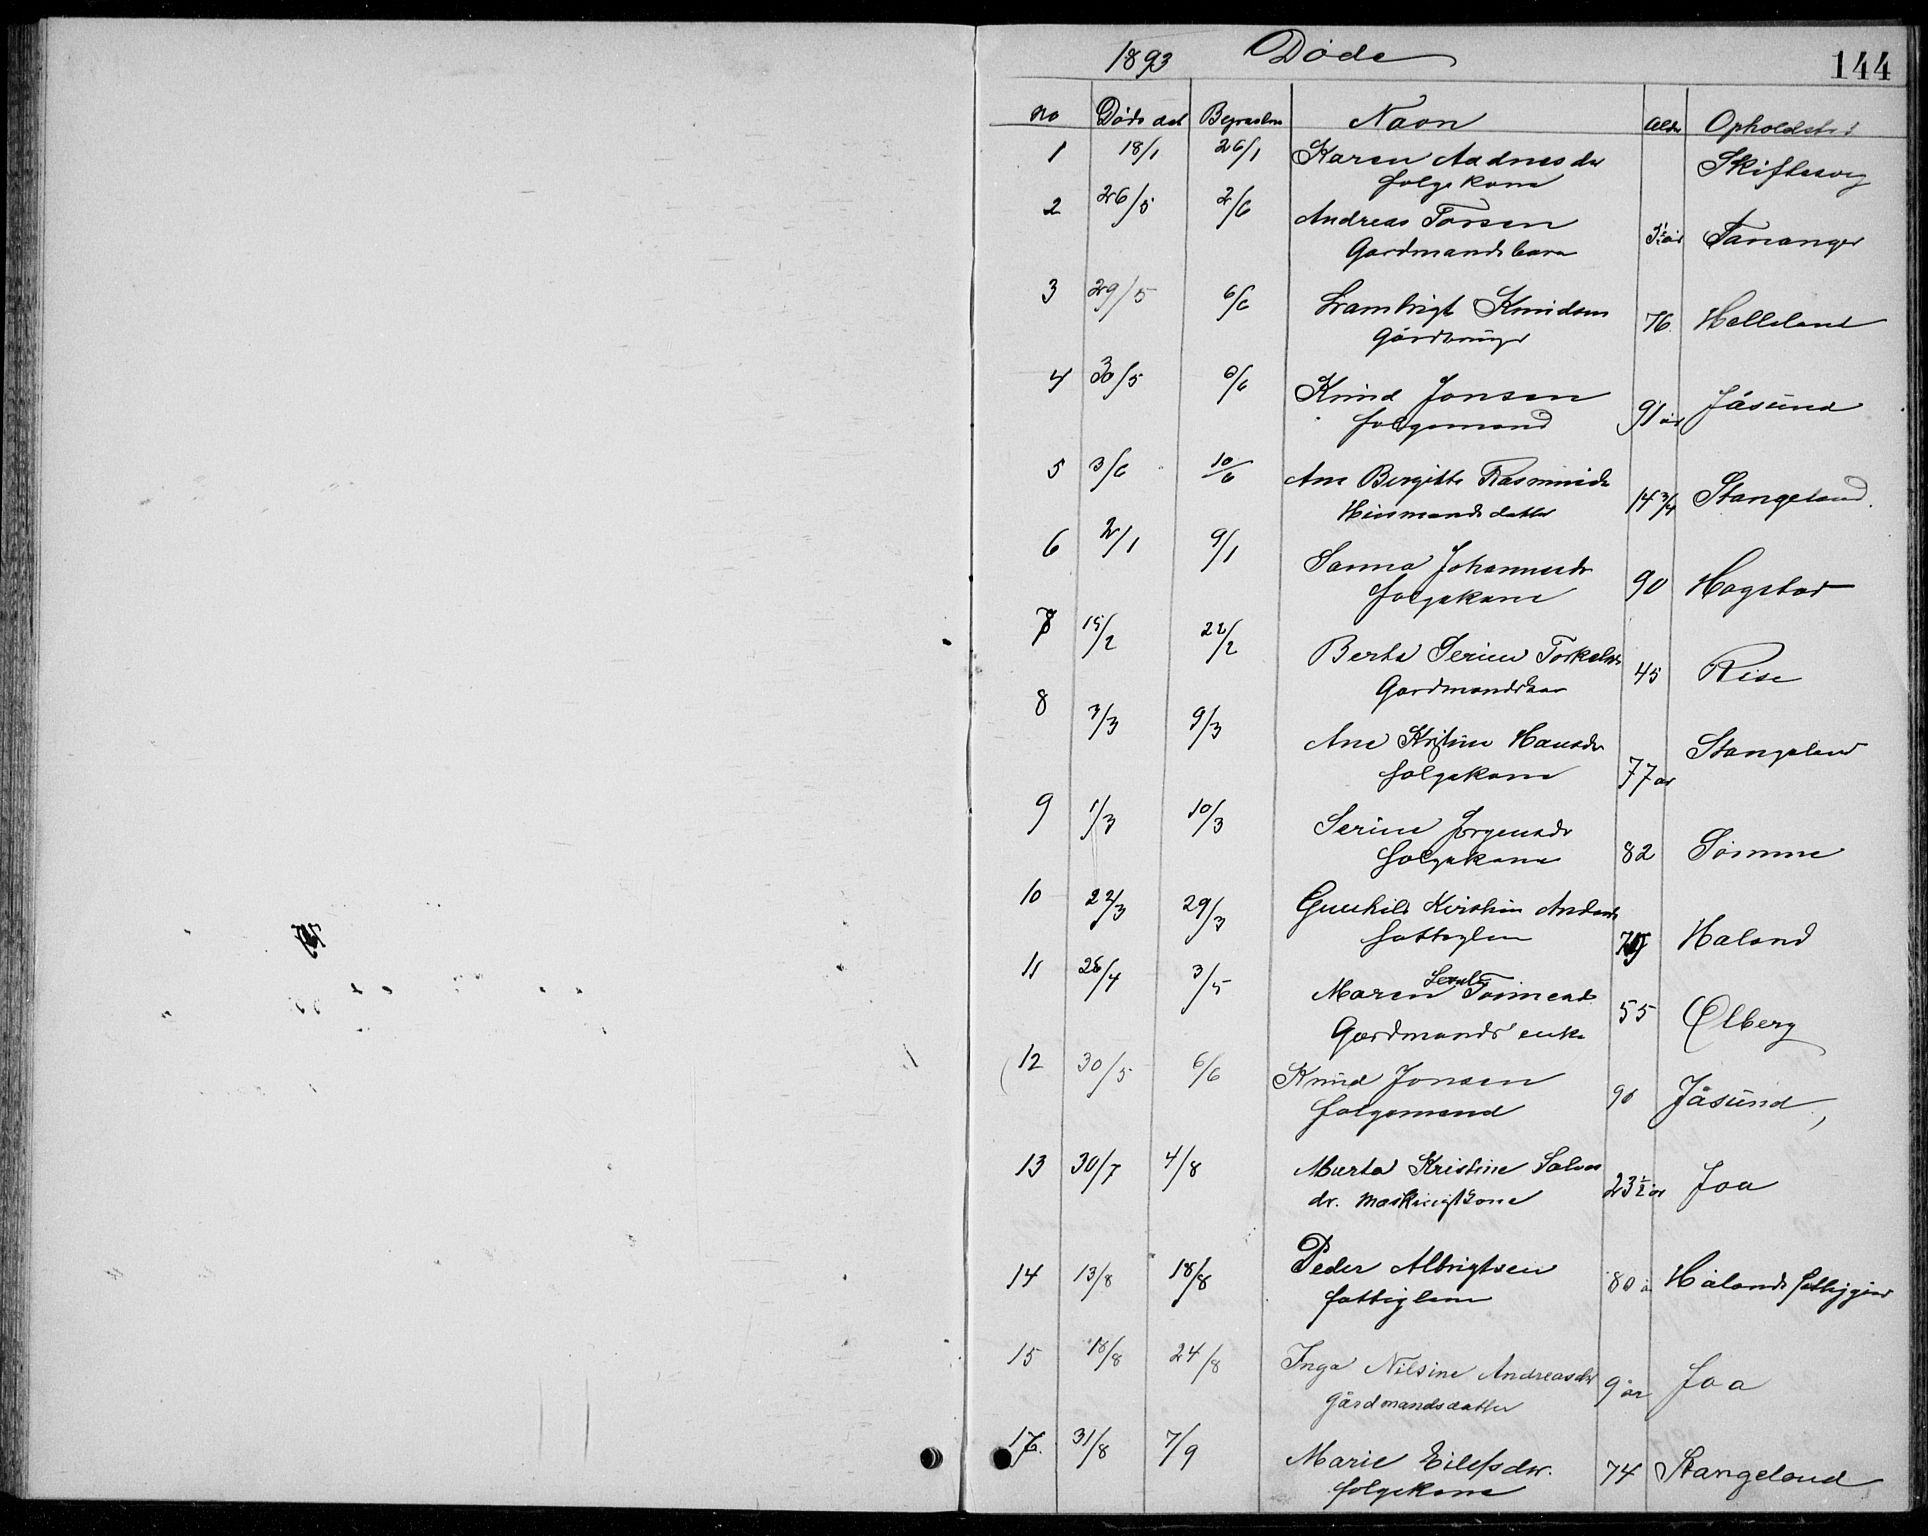 1893 Døde 144
No Døds dat Begravelse Navn Alder Opholdsted
1 18/1 26/1 Karen Aadnesdr Skiftesvig
folgekone
2 26/5 2/6 Andreas Torsen Tananger
Gardmandsbarn
3 29/5 6/6 Knudsen 76 Helleland
Gårdbruger
4 30/5 6/6 Knud Jonsen 91 år Jåsund
folgemand
5 3/6 10/6 Ane Bergitte Rasmusdr 14 3/4 Stangeland
Husmandsdatter
6 2/1 9/1 Sanna Johannesdr 90 Hogstad
folgekone
7 15/2 22/2 Berta Serine Torkelsdr 45 Rise
Gardmandskone
8 3/3 9/3 Ane Kristine Hansdr 77 år Stangeland
folgekone
9 1/3 10/3 Serine Jørgensdr 82 Sømme
folgekone
10 22/3 29/3 Gunhild Kirstine Håland
fattiglem
11 26/4 3/5 Maren 55 Ølberg
Gardmands enke
12 30/5 6/6 Knud Jonsen 90 Jåsund
folgemand
13 30/7 4/8 Marta Kristine Salves 23 1/2 år Joa
dr.
14 13/8 18/8 Peder Albrigtsen 80 å Hålands
fattiglem
15 18/8 24/8 Inga Nilsine Andreasdr 9 år Joa
Gårdmandsdatter
17. 31/8 7/9 Marie Eilefsdr. 74 Stangeland
folgekone